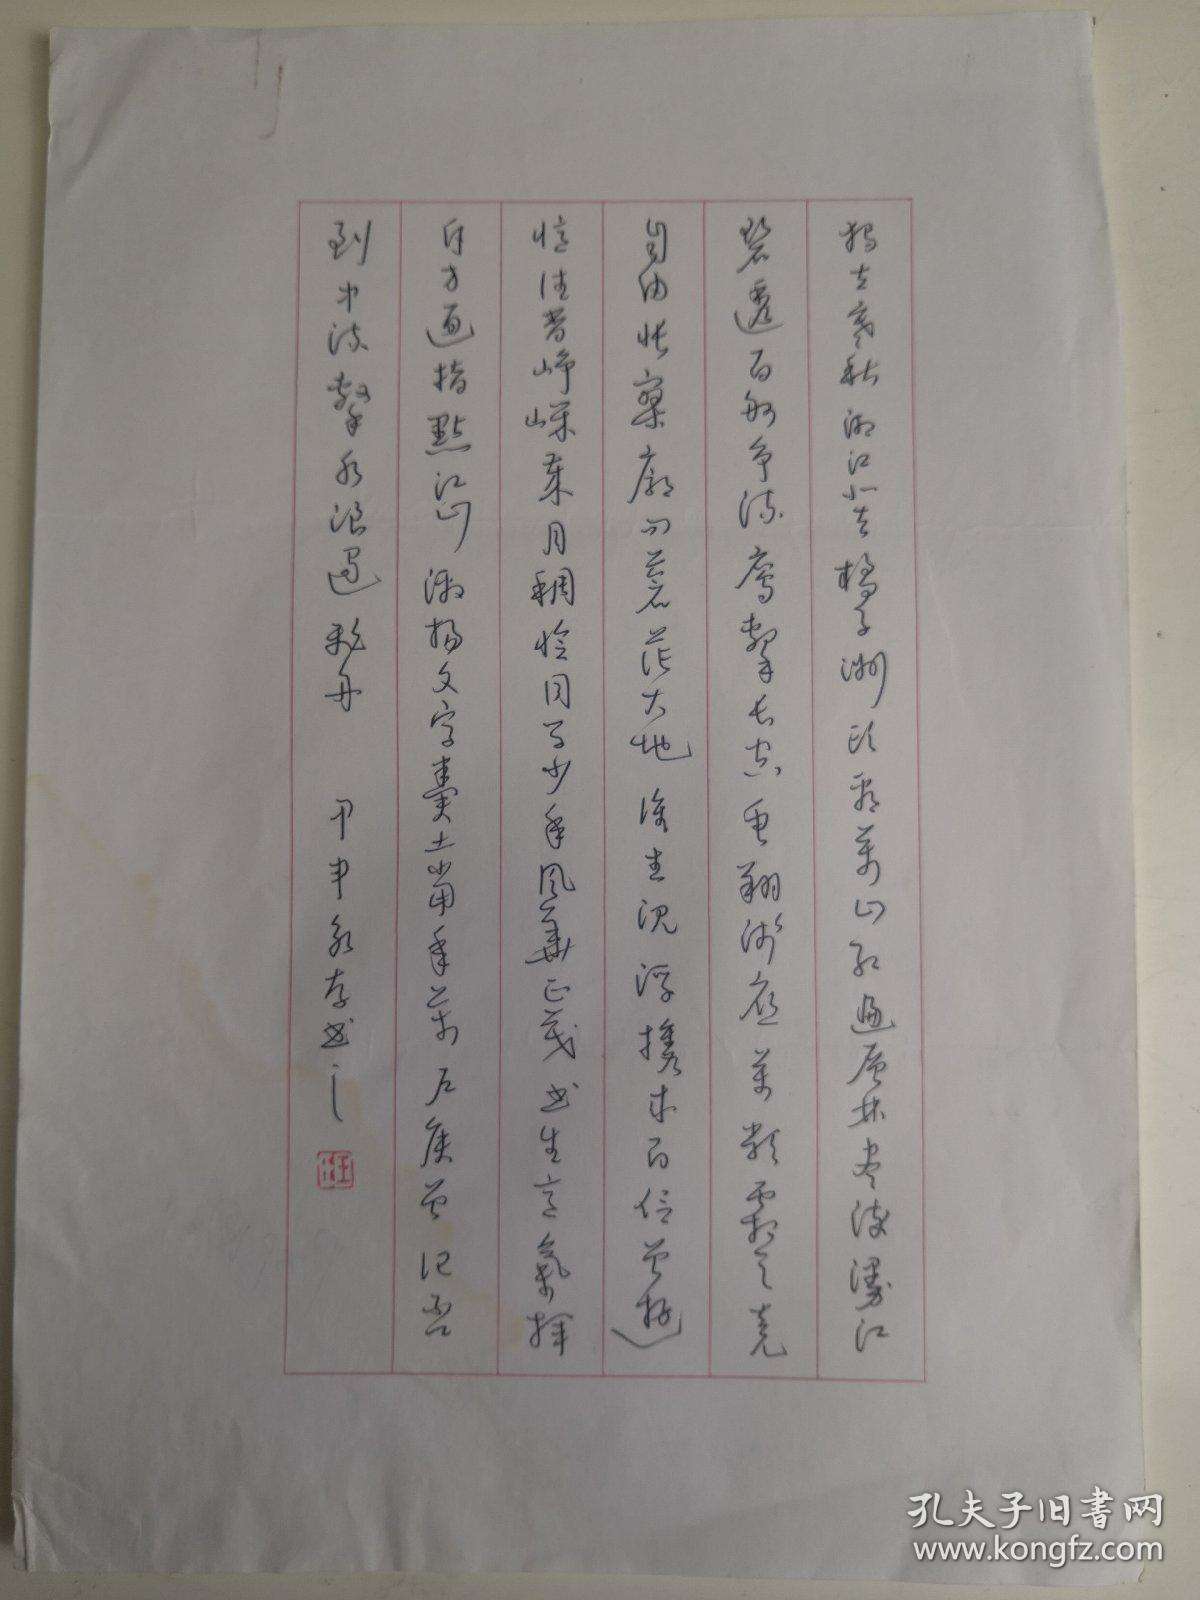 獨立寒秋湘江北去橘子洲头看萬山红遍层林盡染漫江
碧透百舸争流鹰擊长空鱼翔浅底萬類霜天竞
自由怅寥廓问蒼茫大地谁主沉浮携来百侣曾遊
忆往昔峥嵘岁月稠恰同学少年風華正茂书生意氣揮
斥方遒指點江山激揚文字糞土當年萬户侯曾记否
到中流擊水浪遏飛舟 甲申永存书之
孔夫子旧书网
www.kongfz.com